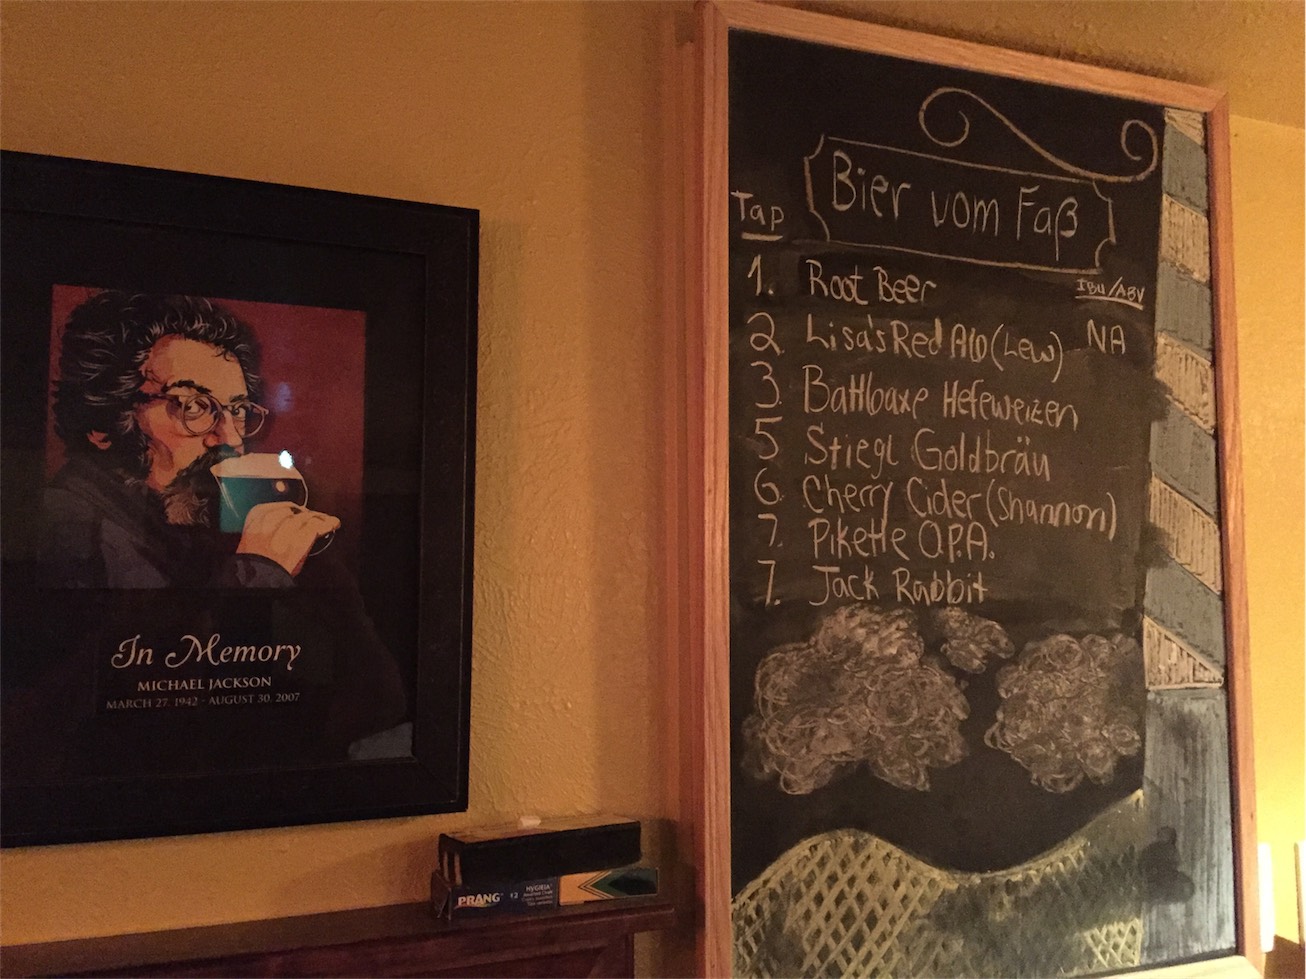 In Memory
MICHAEL JACKSON
MARCH 27, 1942 - AUGUST 30, 2007
PRANG
HYGIEIA
Bier vom Faß
Tap
IBU/ABV
1. Root Beer
NA
2. Lisa's Red Ale (Lew)
3. Battlbaxe Hefeweizen
5 Stiegl Goldbräu
6. Cherry Cider (Shannon)
7. Pikette O.P.A.
7. Jack Rabbit